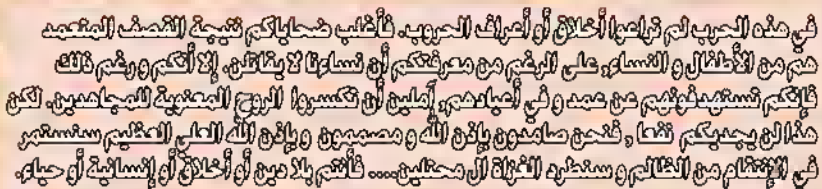 في هذه الحرب لم تراعوا أخلاق أو أعراف الحروب. فأغلب ضحاياكم نتيجة القصف المتعمد
هم من الأطفال و النساء, على الرغم من معرفتكم أن نساءنا لا يقاتلن. إلا أنكم و رغم ذالك
فإنكم تستهدفونهم عن عمد و في أعيادهم, آملين أن تكسروا الروح المعنوية للمجاهدين. لكن
هذا لن يجديكم نفعا , فنحن صامدون بإذن الله و مصممون و بإذن الله العلي العظيم سنستمر
في الإنتقام من الظالم و سنطرد الغزاة ال محتلين.... فأنتم بلا دين أو أخلاق أو إنسانية أو حياء.